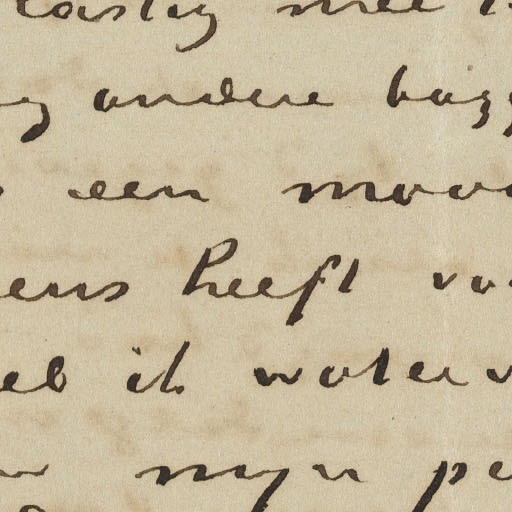 lastig mee
andere bagg
een mooi
ens heeft voo
heb ik water v
mijn pe